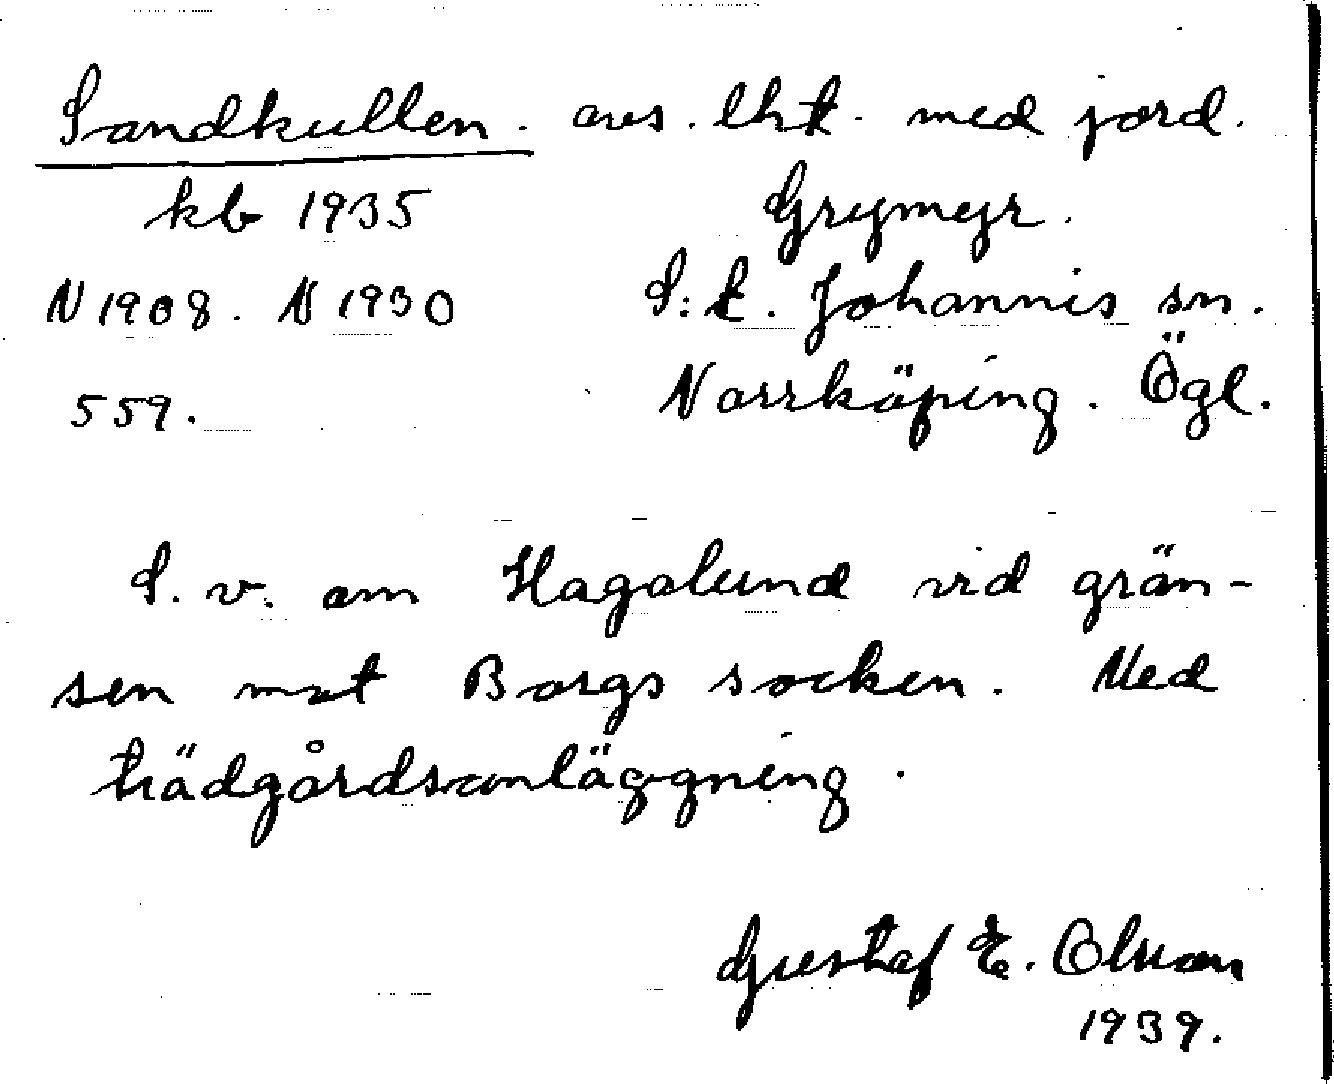 Sandkullen. avs. lht. med jord.
kb 1935 Grymyr.
N 1908. N 1930 S:t. Johannis sn.
559. Norrköping. Ögl.
S. v. om Hagalund vid grän-
sen mot Borgs socken. Med
trädgårdsanläggning.
Gustaf E. Olsson
1939.